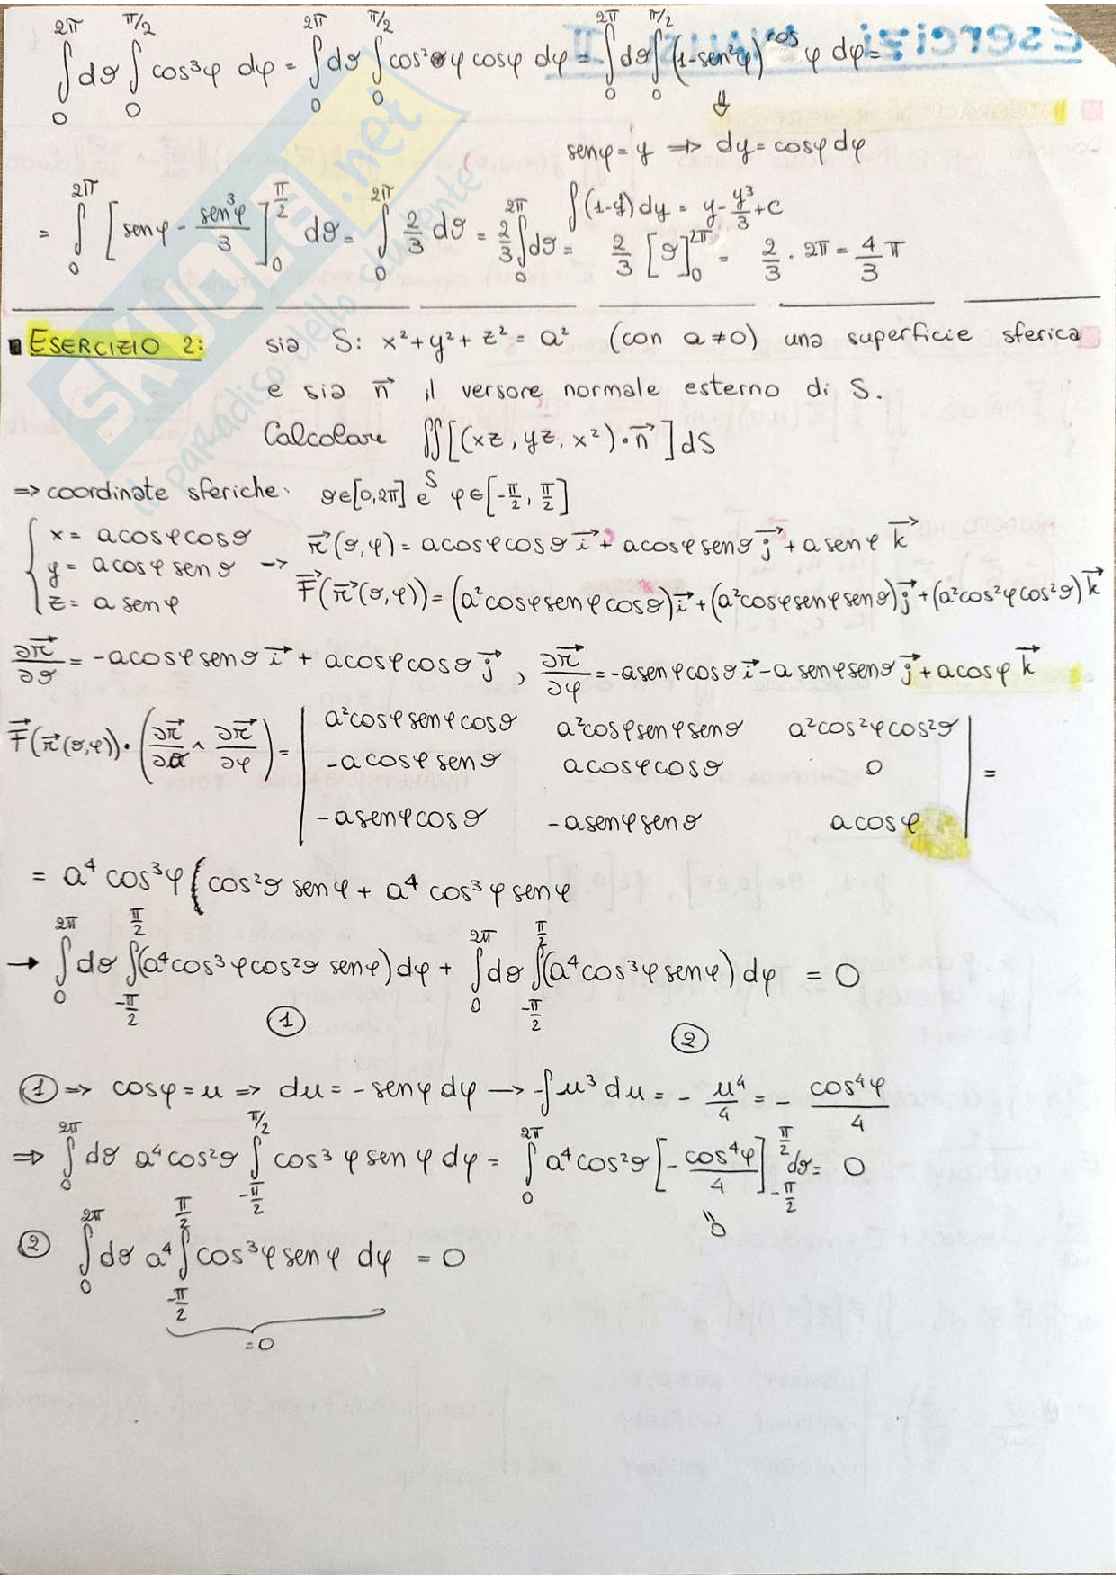 ∫₀^{2π} dϑ ∫₀^{π/2} cos³φ dφ = ∫₀^{2π} dϑ ∫₀^{π/2} cos²φ cosφ dφ = ∫₀^{2π} dϑ ∫₀^{π/2} (1-sen²φ) cos φ dφ =
⇓
senφ = y ⇒ dy = cosφ dφ
∫(1-y²) dy = y - y³/3 + c
= ∫₀^{2π} [senφ - sen³φ/3]₀^{π/2} dϑ = ∫₀^{2π} 2/3 dϑ = 2/3 ∫₀^{2π} dϑ = 2/3 [ϑ]₀^{2π} = 2/3 · 2π = 4/3 π
ESERCIZIO 2: sia S: x²+y²+z² = a² (con a ≠ 0) una superficie sferica
e sia n⃗ il versore normale esterno di S.
Calcolare ∬_S [(xz, yz, x²)·n⃗] dS
⇒ coordinate sferiche: ϑ∈[0,2π] e φ∈[-π/2, π/2]
{ x = a cosφ cosϑ
y = a cosφ senϑ
z = a senφ
→ r⃗(ϑ,φ) = a cosφ cosϑ i⃗ + a cosφ senϑ j⃗ + a senφ k⃗
F⃗(r⃗(ϑ,φ)) = (a²cosφ senφ cosϑ) i⃗ + (a²cosφ senφ senϑ) j⃗ + (a²cos²φ cos²ϑ) k⃗
∂r⃗/∂ϑ = -a cosφ senϑ i⃗ + a cosφ cosϑ j⃗ , ∂r⃗/∂φ = -a senφ cosϑ i⃗ - a senφ senϑ j⃗ + a cosφ k⃗
F⃗(r⃗(ϑ,φ)) · (∂r⃗/∂ϑ ∧ ∂r⃗/∂φ) = | a²cosφ senφ cosϑ a²cosφ senφ senϑ a²cos²φ cos²ϑ
-a cosφ senϑ a cosφ cosϑ 0
-a senφ cosϑ -a senφ senϑ a cosφ | =
= a⁴ cos³φ ( cos²ϑ senφ + a⁴ cos³φ senφ
→ ∫₀^{2π} dϑ ∫_{-π/2}^{π/2} (a⁴cos³φ cos²ϑ senφ) dφ + ∫₀^{2π} dϑ ∫_{-π/2}^{π/2} (a⁴cos³φ senφ) dφ = 0
① ②
① ⇒ cosφ = u ⇒ du = -senφ dφ → -∫u³ du = - u⁴/4 = - cos⁴φ/4
⇒ ∫₀^{2π} dϑ a⁴cos²ϑ ∫_{-π/2}^{π/2} cos³φ senφ dφ = ∫₀^{2π} a⁴cos²ϑ [-cos⁴φ/4]_{-π/2}^{π/2} dϑ = 0
= 0
② ∫₀^{2π} dϑ a⁴ ∫_{-π/2}^{π/2} cos³φ senφ dφ = 0
= 0
SKUOLA.net
il paradiso dello studente